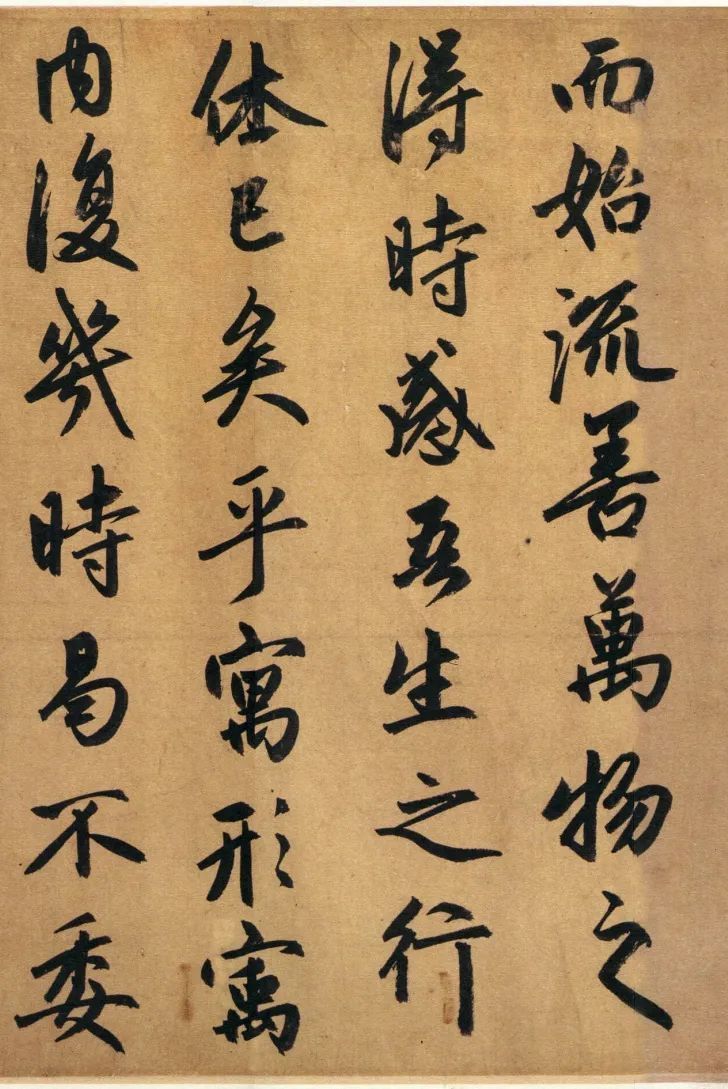 而始流善萬物之
得時感吾生之行
休已矣乎寓形寓
内復幾時曷不委